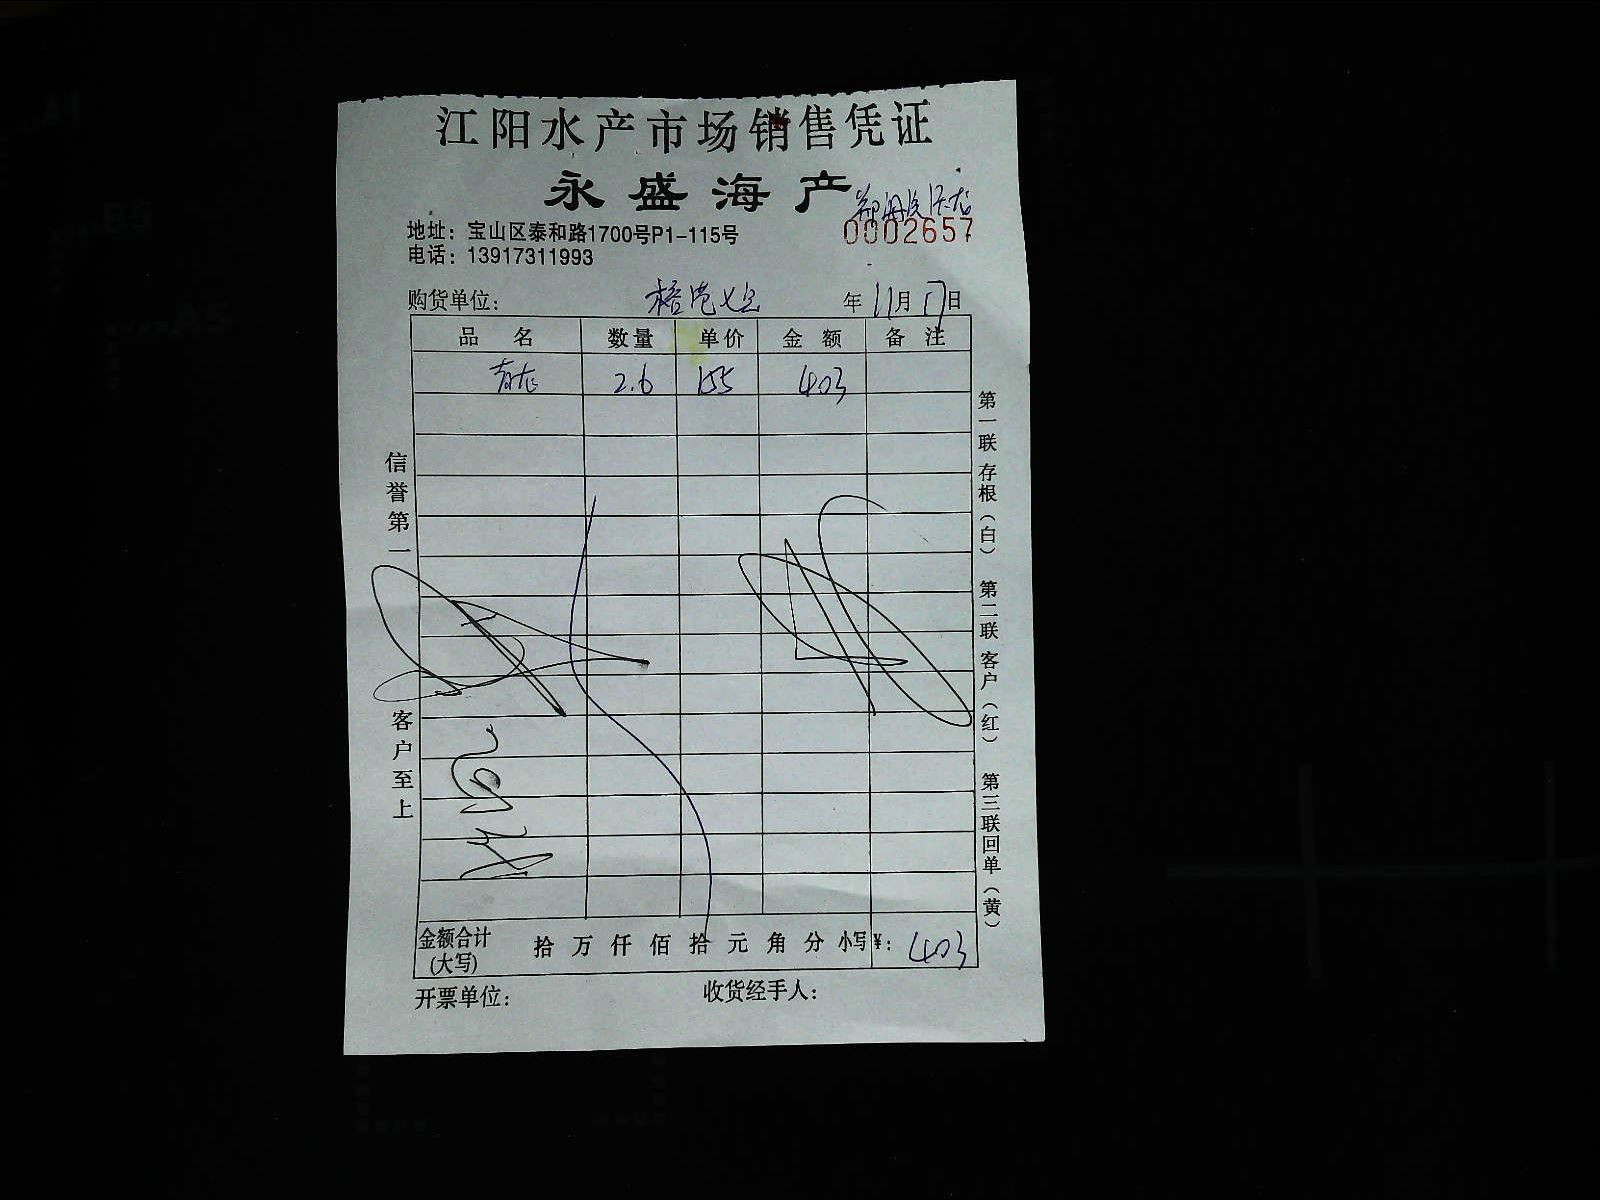 江阳水产市场销售凭证
永盛海产
地址：宝山区泰和路1700号P1-115号
0002657
电话：13917311993
购货单位： 年 11月 17日
品 名 数量 单价 金 额 备 注
青龙 2.6 155 403
信誉第一
客户至上
第一联 存根（白） 第二联 客户（红） 第三联 回单（黄）
金额合计(大写) 拾 万 仟 佰 拾 元 角 分 小写¥：403
开票单位： 收货经手人：